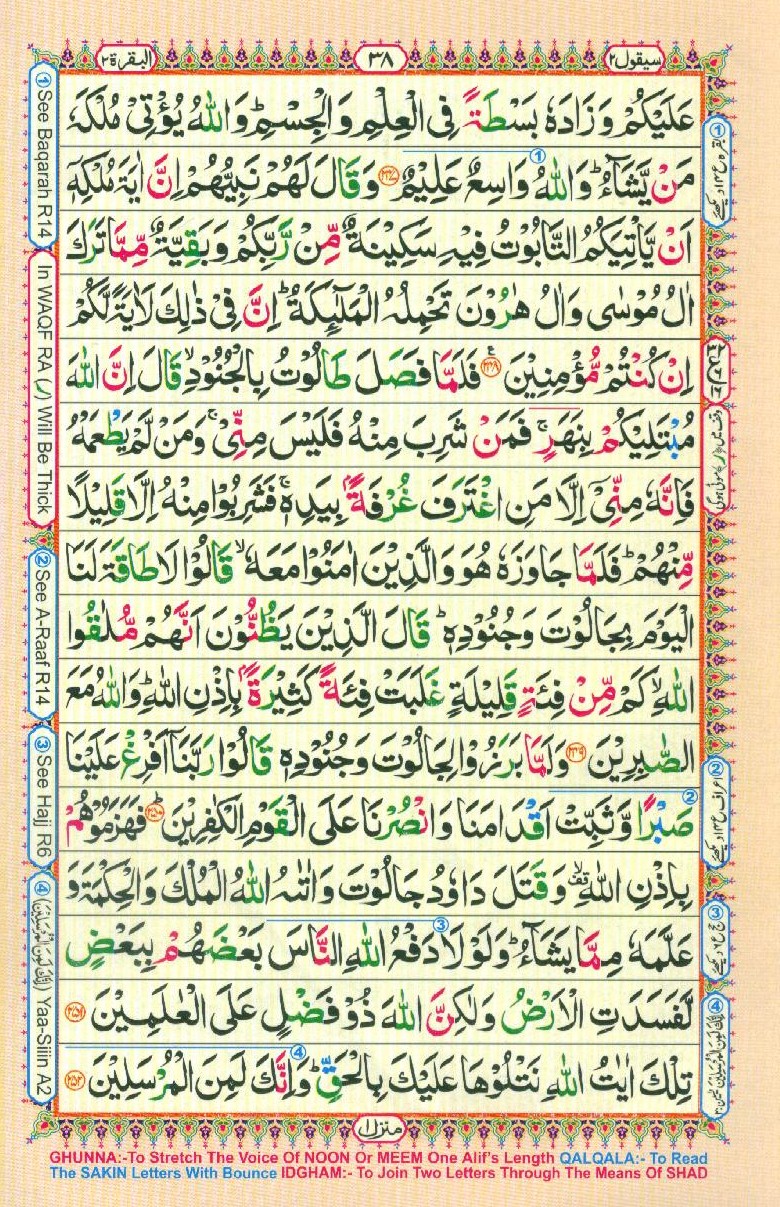 سيقول ٢
٣٨
البقرة ٢
عَلَيْكُمْ وَزَادَهٗ بَسْطَةً فِى الْعِلْمِ وَالْجِسْمِ ؕ وَاللّٰهُ يُؤْتِىْ مُلْكَهٗ
مَنْ يَّشَآءُ ؕ وَاللّٰهُ وَاسِعٌ عَلِيْمٌ ﴿۲۴۷﴾ وَقَالَ لَهُمْ نَبِيُّهُمْ اِنَّ اٰيَةَ مُلْكِهٖۤ
اَنْ يَّاْتِيَكُمُ التَّابُوْتُ فِيْهِ سَكِيْنَةٌ مِّنْ رَّبِّكُمْ وَبَقِيَّةٌ مِّمَّا تَرَكَ
اٰلُ مُوْسٰى وَاٰلُ هٰرُوْنَ تَحْمِلُهُ الْمَلٰٓئِكَةُ ؕ اِنَّ فِىْ ذٰلِكَ لَاٰيَةً لَّكُمْ
اِنْ كُنْتُمْ مُّؤْمِنِيْنَ ﴿۲۴۸﴾ فَلَمَّا فَصَلَ طَالُوْتُ بِالْجُنُوْدِ ۙ قَالَ اِنَّ اللّٰهَ
مُبْتَلِيْكُمْ بِنَهَرٍ ۚ فَمَنْ شَرِبَ مِنْهُ فَلَيْسَ مِنِّىْ ۚ وَمَنْ لَّمْ يَطْعَمْهُ
فَاِنَّهٗ مِنِّىْۤ اِلَّا مَنِ اغْتَرَفَ غُرْفَةًۢ بِيَدِهٖ ۚ فَشَرِبُوْا مِنْهُ اِلَّا قَلِيْلًا
مِّنْهُمْ ؕ فَلَمَّا جَاوَزَهٗ هُوَ وَالَّذِيْنَ اٰمَنُوْا مَعَهٗ ۙ قَالُوْا لَا طَاقَةَ لَنَا
الْيَوْمَ بِجَالُوْتَ وَجُنُوْدِهٖ ؕ قَالَ الَّذِيْنَ يَظُنُّوْنَ اَنَّهُمْ مُّلٰقُوا
اللّٰهِ ۙ كَمْ مِّنْ فِئَةٍ قَلِيْلَةٍ غَلَبَتْ فِئَةً كَثِيْرَةًۢ بِاِذْنِ اللّٰهِ ؕ وَاللّٰهُ مَعَ
الصّٰبِرِيْنَ ﴿۲۴۹﴾ وَلَمَّا بَرَزُوْا لِجَالُوْتَ وَجُنُوْدِهٖ قَالُوْا رَبَّنَاۤ اَفْرِغْ عَلَيْنَا
صَبْرًا وَّثَبِّتْ اَقْدَامَنَا وَانْصُرْنَا عَلَى الْقَوْمِ الْكٰفِرِيْنَ ﴿۲۵۰﴾ فَهَزَمُوْهُمْ
بِاِذْنِ اللّٰهِ ۙ وَقَتَلَ دَاوٗدُ جَالُوْتَ وَاٰتٰىهُ اللّٰهُ الْمُلْكَ وَالْحِكْمَةَ وَ
عَلَّمَهٗ مِمَّا يَشَآءُ ؕ وَلَوْلَا دَفْعُ اللّٰهِ النَّاسَ بَعْضَهُمْ بِبَعْضٍ
لَّفَسَدَتِ الْاَرْضُ وَلٰكِنَّ اللّٰهَ ذُوْ فَضْلٍ عَلَى الْعٰلَمِيْنَ ﴿۲۵۱﴾
تِلْكَ اٰيٰتُ اللّٰهِ نَتْلُوْهَا عَلَيْكَ بِالْحَقِّ ؕ وَاِنَّكَ لَمِنَ الْمُرْسَلِيْنَ ﴿۲۵۲﴾
منزل ١
① See Baqarah R14
In WAQF RA (ر) Will Be Thick
② See A-Raaf R14
③ See Hajj R6
④ (اِنَّكَ لَمِنَ الْمُرْسَلِيْنَ) Yaa-Siiin A2
GHUNNA:-To Stretch The Voice Of NOON Or MEEM One Alif's Length QALQALA:- To Read
The SAKIN Letters With Bounce IDGHAM:- To Join Two Letters Through The Means Of SHAD